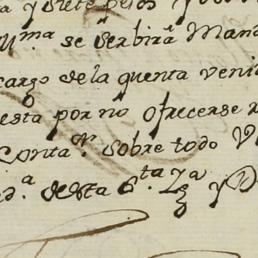 a y siete pesos y
Yll.ma se serbirá Mand
cargo de la quenta veni
esta por no ofrecerse
Conta.or sobre todo V
d.a desta C.ta Za y D